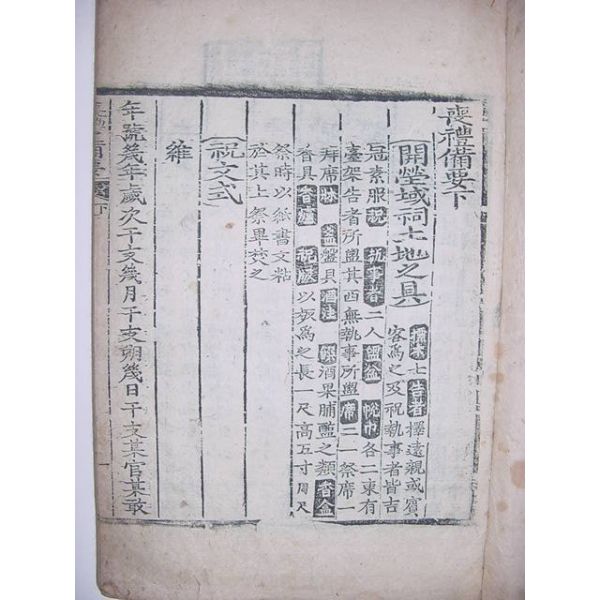 喪禮備要下
開塋域祠土地之具
標木七告者擇遠親或賓
客爲之及祝執事者皆吉
冠素服祝執事者二人盥盆帨巾各二東有
臺架告者所盥其西無執事所盥席二一祭席一
拜席 盞盤具酒注 酒果脯醢之類香盒
香具香爐祝版以板爲之長一尺高五寸周尺
祭時以紙書文粘
於其上祭畢焚之
祝文式
維
年號幾年歲次干支幾月干支朔幾日干支某官某敢
下
一